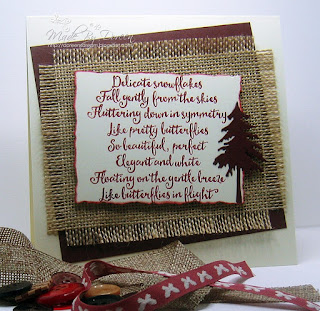 Made By Doreen
Delicate snowflakes
Fall gently from the skies
Fluttering down in symmetry
Like pretty butterflies
So beautiful, perfect
Elegant and white
Floating on the gentle breeze
Like butterflies in flight